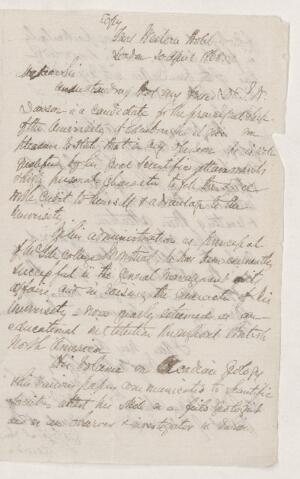 Copy
Great Western Hotel
London 20 April 1868
My Lords
Understanding that my friend Dr J. W.
Dawson is a candidate for the principalship
of the University of Edinburgh it gives me
pleasure to state that in my opinion he is well
qualified by his great scientific attainments
& high personal character to fill the office
with credit to himself & advantage to the
University.
In his administration as Principal
of McGill College Montreal he has been eminently
successful in the general management of its
affairs and in raising the character of his
University, now greatly esteemed as an
educational institution throughout British
North America
His volume on Acadian Geology
& his numerous papers communicated to scientific
Societies attest his skill as a field geologist
and as an observer & investigator in